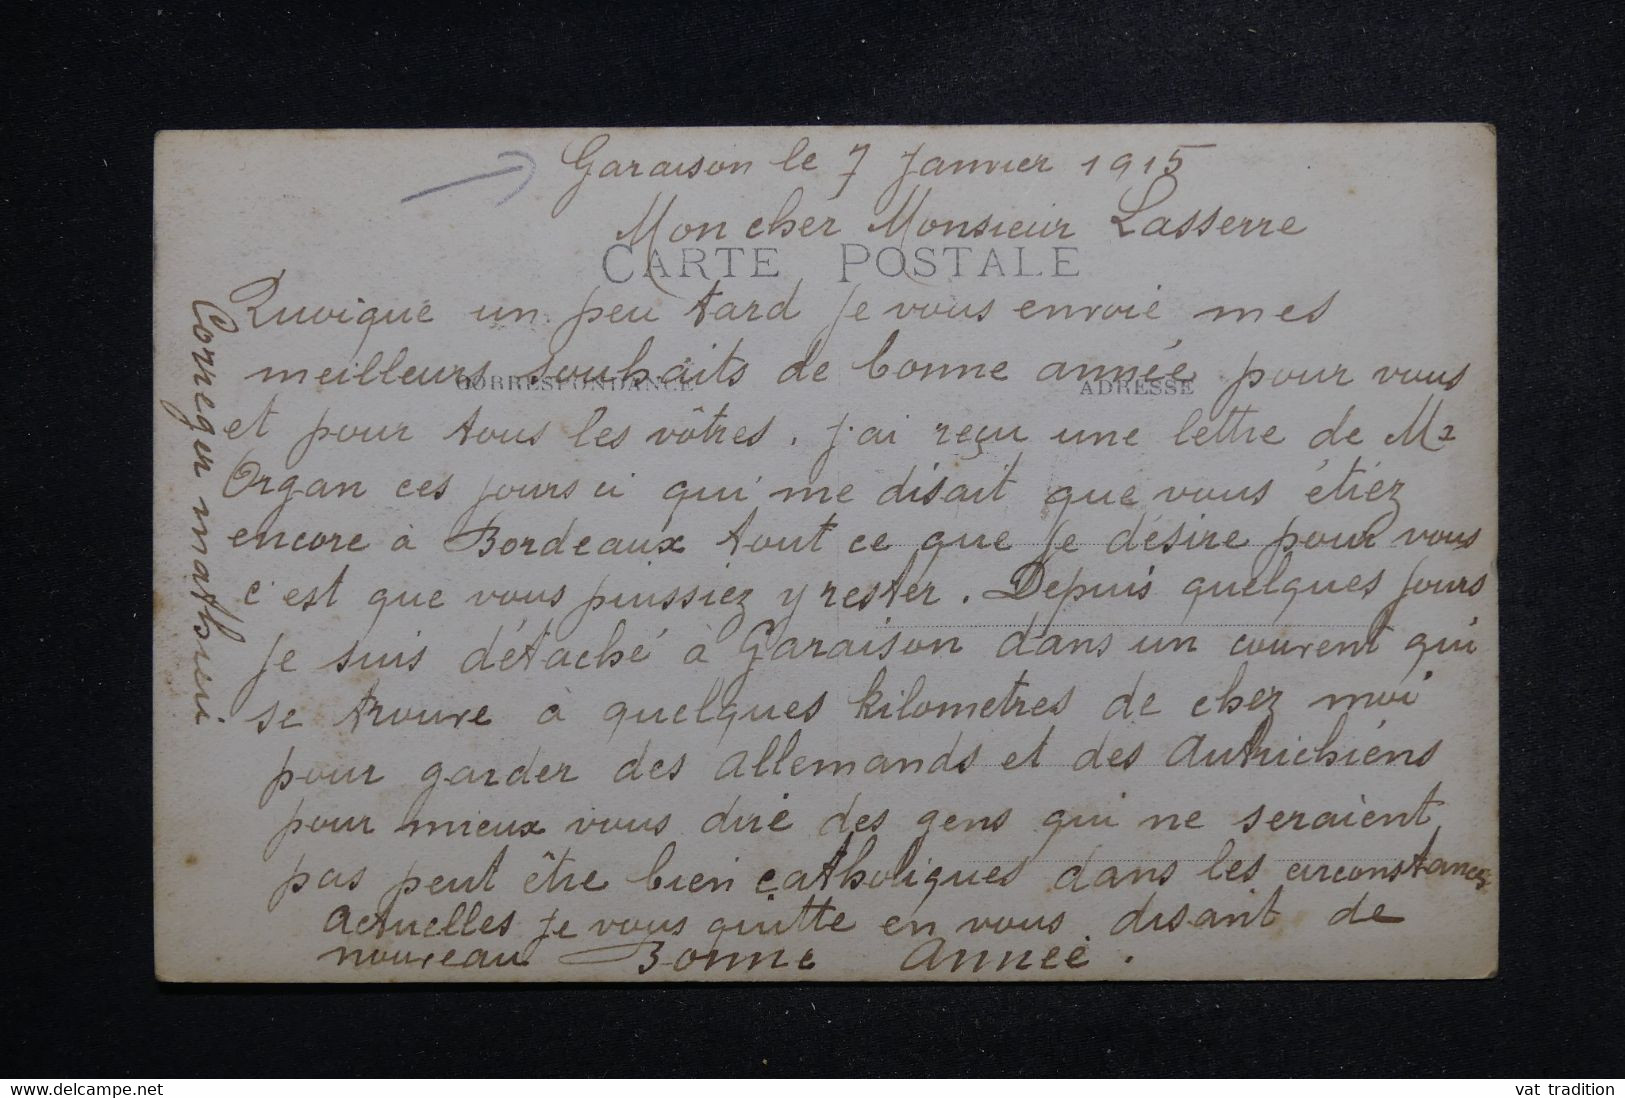 Garaison le 7 Janvier 1915
Mon cher Monsieur Lasserre
CARTE POSTALE
Quoique un peu tard je vous envoie mes
meilleurs souhaits de bonne année pour vous
CORRESPONDANCE
ADRESSE
et pour tous les vôtres. J'ai reçu une lettre de Mr
Organ ces jours ci qui me disait que vous étiez
encore à Bordeaux tout ce que je désire pour vous
c'est que vous puissiez y rester. Depuis quelques jours
je suis détaché à Garaison dans un couvent qui
se trouve à quelques kilometres de chez moi
pour garder des allemands et des autrichiens
pour mieux vous dire des gens qui ne seraient
pas peut être bien catholiques dans les circonstances
actuelles je vous quitte en vous disant de
nouveau Bonne Année.
Correger mathieu
www.delcampe.net
vat tradition